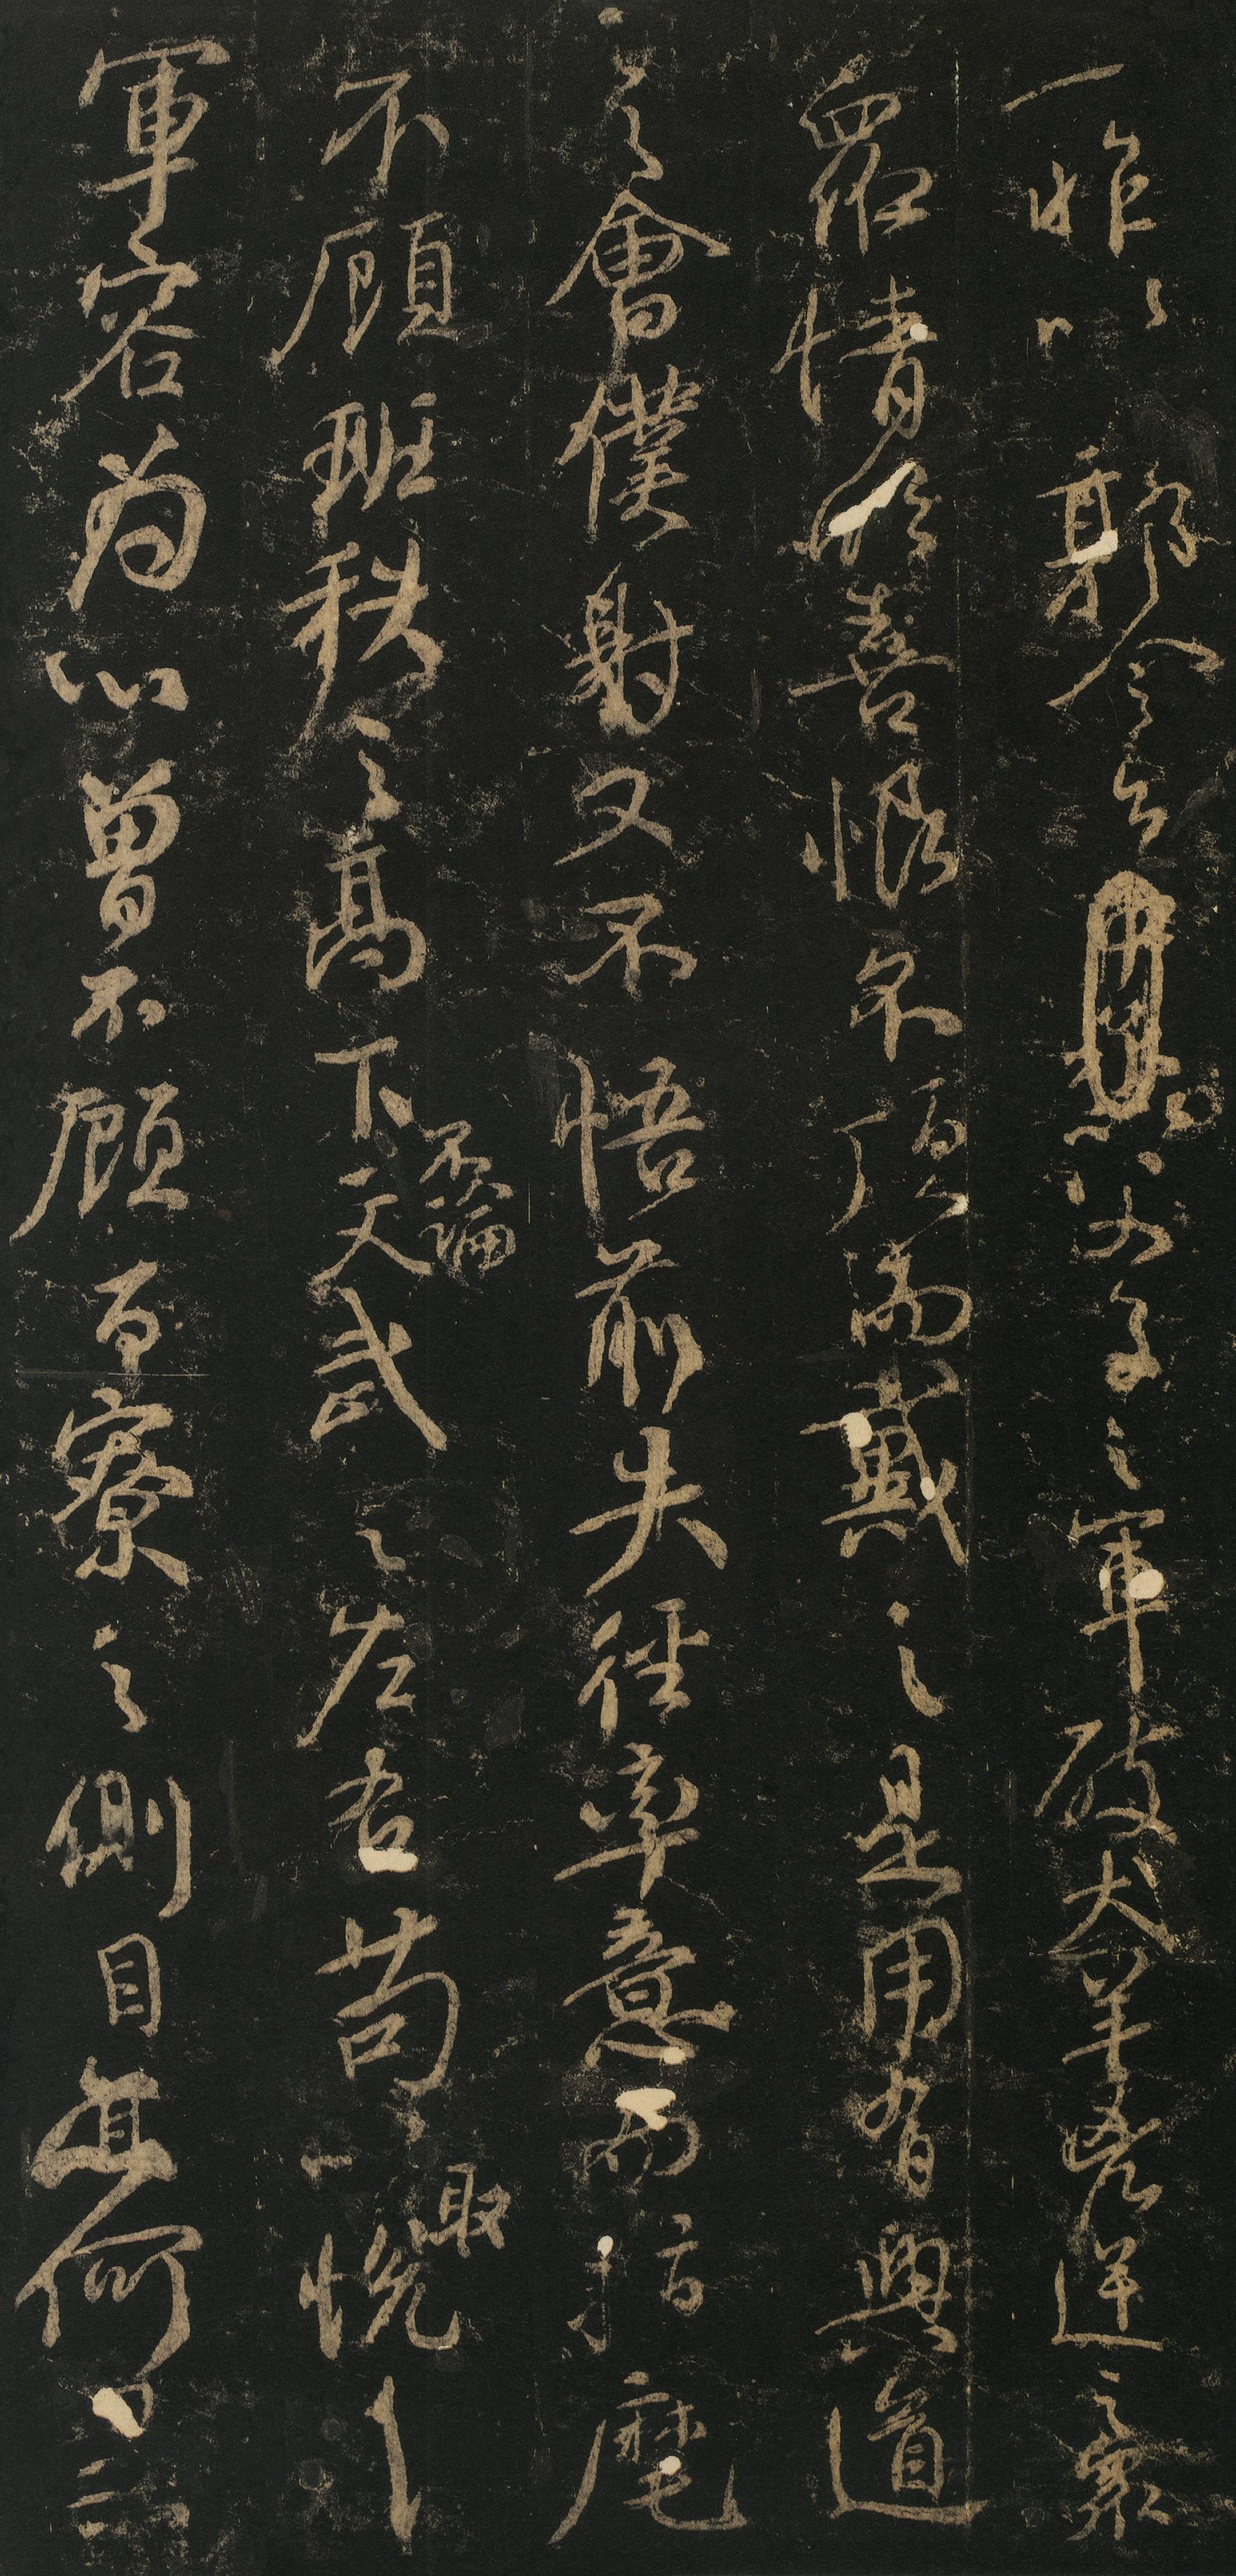 一昨以郭令公以父子之軍破犬羊凶逆之眾
眾情欣喜恨不頂而戴之是用有興道
之會僕射又不悟前失徑率意而指麾
不顧班秩之高下不論文武之左右苟以取悅
軍容為心曾不顧百寮之側目亦何